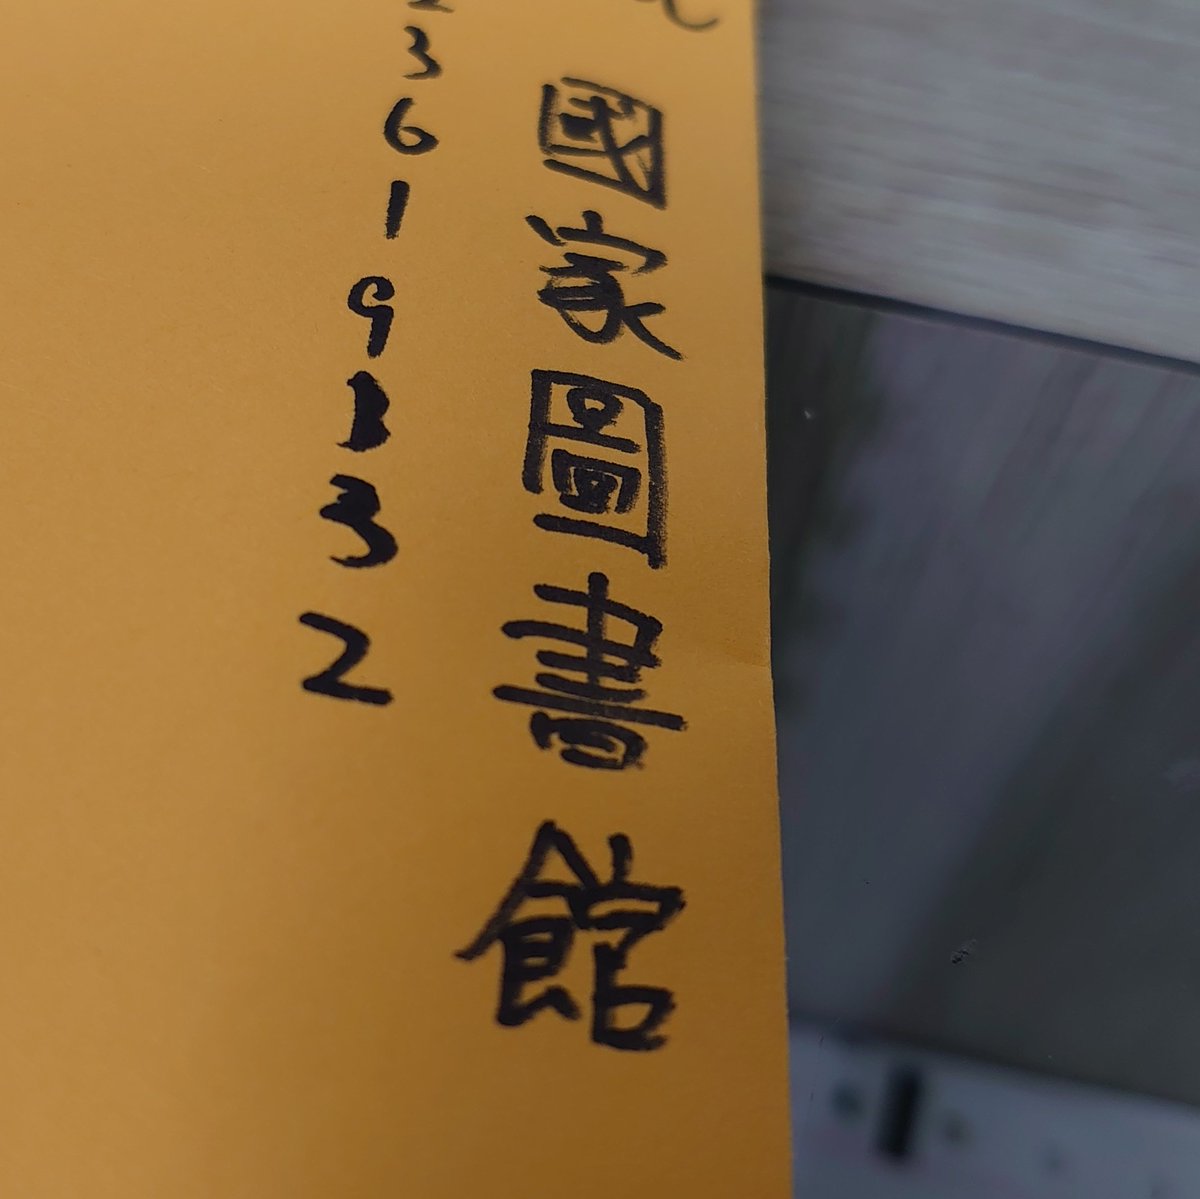 國家圖書館
3619132